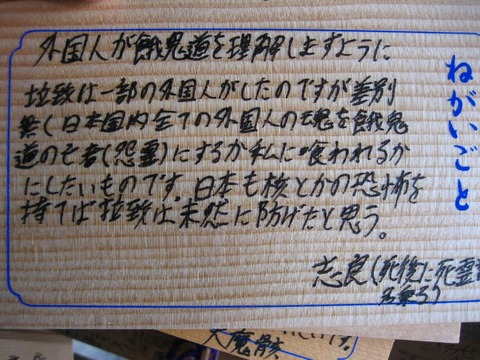 ねがいごと
外国人が餓鬼道を理解しますように
拉致は一部の外国人がしたのですが差別
無く日本国内全ての外国人の魂を餓鬼
道の亡者(怨霊)にするか私に喰われるか
にしたいものです。日本も核とかの恐怖を
持てば拉致は未然に防げたと思う。
志良(死後に死霊
名乗ろ)
大魔骸